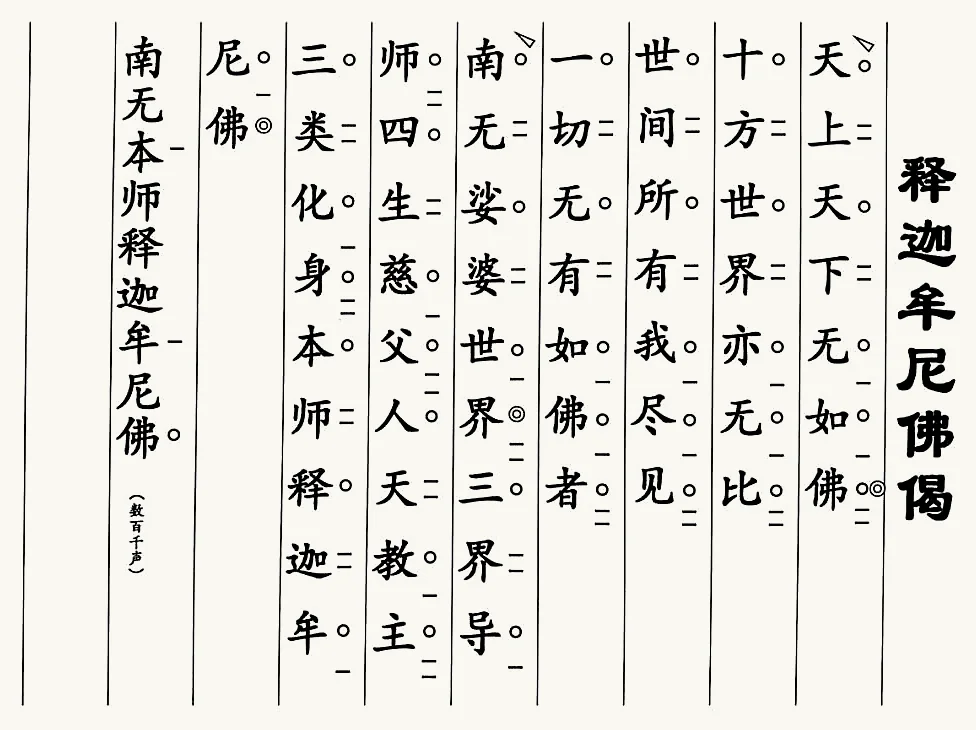 释迦牟尼佛偈
天上天下无如佛
十方世界亦无比
世间所有我尽见
一切无有如佛者
南无娑婆世界三界导
师四生慈父人天教主
三类化身本师释迦牟
尼佛
南无本师释迦牟尼佛（数百千声）